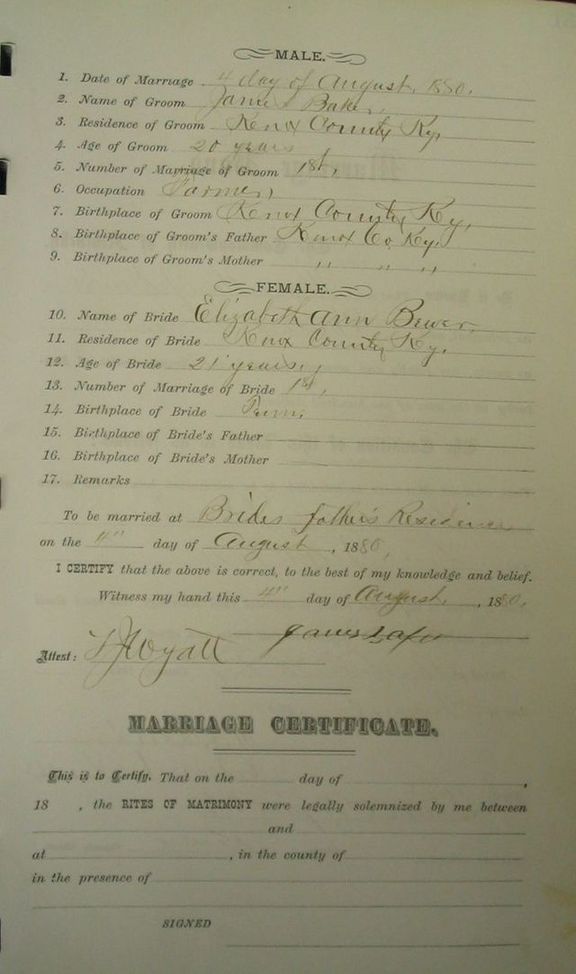 MALE.
1. Date of Marriage 4 day of August, 1880.
2. Name of Groom James Baker,
3. Residence of Groom Knox County Ky,
4. Age of Groom 20 years,
5. Number of Marriage of Groom 1st,
6. Occupation Farmer,
7. Birthplace of Groom Knox County, Ky,
8. Birthplace of Groom's Father Knox Co, Ky,
9. Birthplace of Groom's Mother " " "
FEMALE.
10. Name of Bride Elizabeth Ann
11. Residence of Bride Knox County Ky,
12. Age of Bride 21 years,
13. Number of Marriage of Bride 1st,
14. Birthplace of Bride
15. Birthplace of Bride's Father
16. Birthplace of Bride's Mother
17. Remarks
To be married at Brides father's Residence
on the day of August, 1880,
I CERTIFY that the above is correct, to the best of my knowledge and belief.
Witness my hand this 4" day of August, 1880,
James
Attest: Wyatt
MARRIAGE CERTIFICATE.
This is to Certify, That on the day of ,
18 , the RITES OF MATRIMONY were legally solemnized by me between
and
at , in the county of
in the presence of
SIGNED